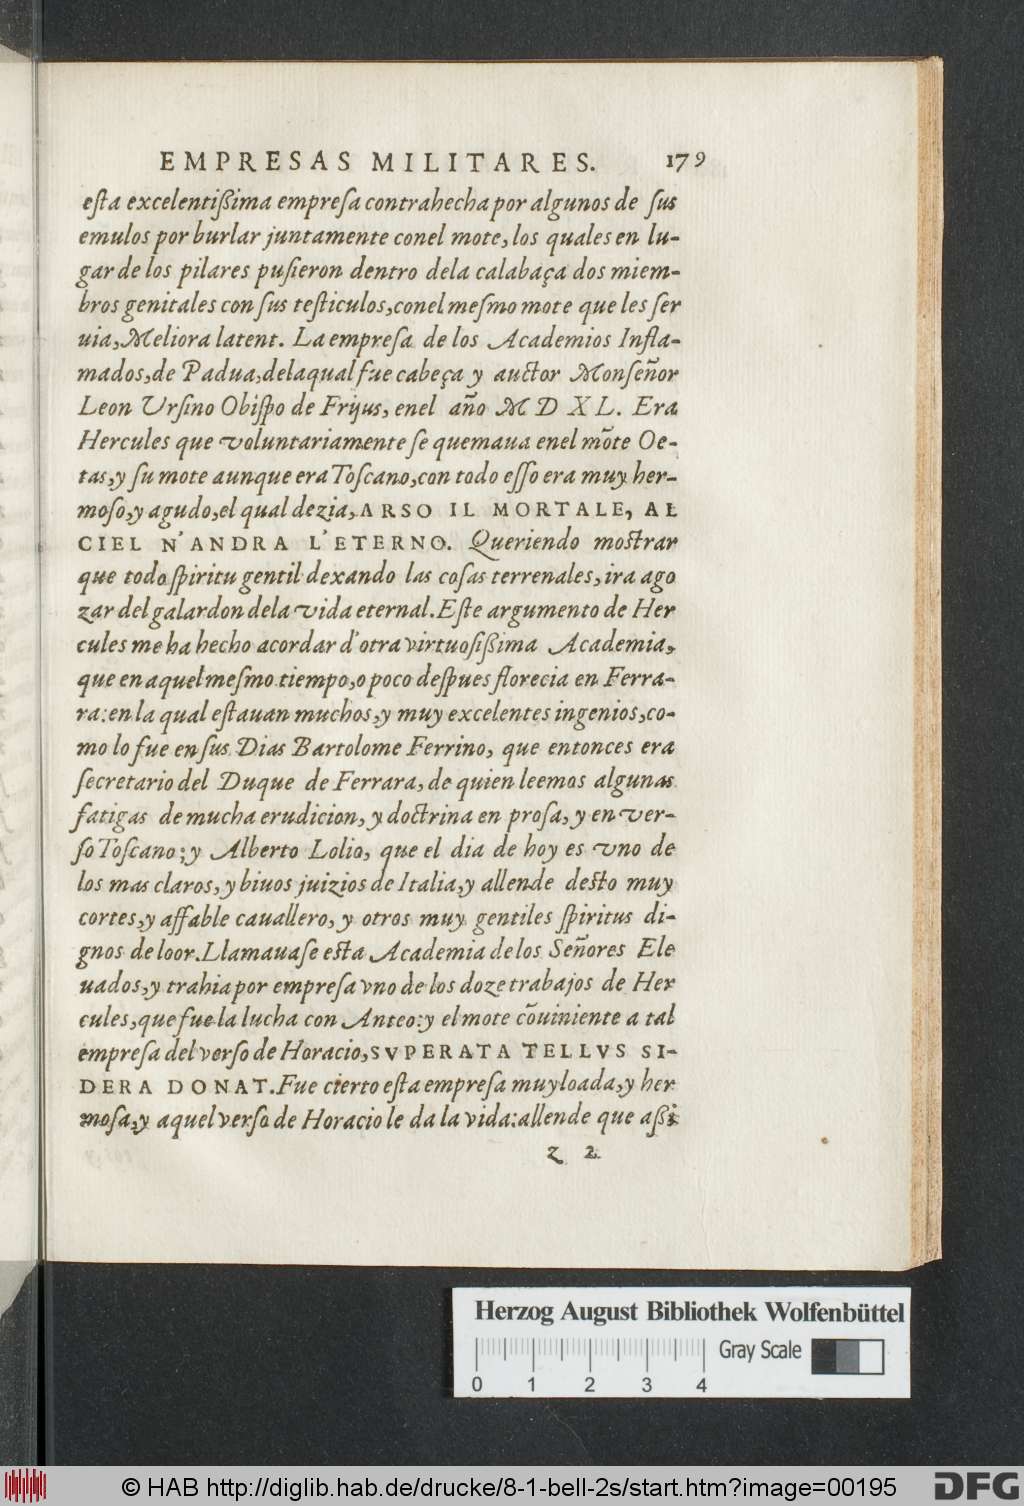 EMPRESAS MILITARES. 179
eſta excelentißima empreſa contrahecha por algunos de ſus
emulos por burlar juntamente conel mote, los quales en lu-
gar de los pilares puſieron dentro dela calabaça dos miem-
bros genitales con ſus teſticulos, conel meſmo mote que les ſer
uia, Meliora latent. La empreſa de los Academios Infla-
mados, de Padua, delaqual fue cabeça y auctor Monſeñor
Leon Urſino Obiſpo de Frijus, enel año M D XL. Era
Hercules que voluntariamente ſe quemaua enel mõte Oe-
tas, y ſu mote aunque era Toſcano, con todo eſſo era muy her-
moſo, y agudo, el qual dezia, ARSO IL MORTALE, AL
CIEL N'ANDRA L'ETERNO. Queriendo moſtrar
que todo ſpiritu gentil dexando las coſas terrenales, ira ago
zar del galardon dela vida eternal. Eſte argumento de Her
cules me ha hecho acordar d'otra virtuoſißima Academia,
que en aquel meſmo tiempo, o poco deſpues florecia en Ferra-
ra: en la qual eſtauan muchos, y muy excelentes ingenios, co-
mo lo fue en ſus Dias Bartolome Ferrino, que entonces era
ſecretario del Duque de Ferrara, de quien leemos algunas
fatigas de mucha erudicion, y doctrina en proſa, y en ver-
ſo Toſcano; y Alberto Lolio, que el dia de hoy es vno de
los mas claros, y biuos juizios de Italia, y allende deſto muy
cortes, y affable cauallero, y otros muy gentiles ſpiritus di-
gnos de loor. Llamauaſe eſta Academia de los Señores Ele
uados, y trahia por empreſa vno de los doze trabajos de Her
cules, que fue la lucha con Anteo: y el mote cõuiniente a tal
empreſa del verſo de Horacio, SVPERATA TELLVS SI-
DERA DONAT. Fue cierto eſta empreſa muy loada, y her
moſa, y aquel verſo de Horacio le da la vida: allende que aßi
z 2
Herzog August Bibliothek Wolfenbüttel
Gray Scale
0 1 2 3 4
© HAB http://diglib.hab.de/drucke/8-1-bell-2s/start.htm?image=00195
DFG